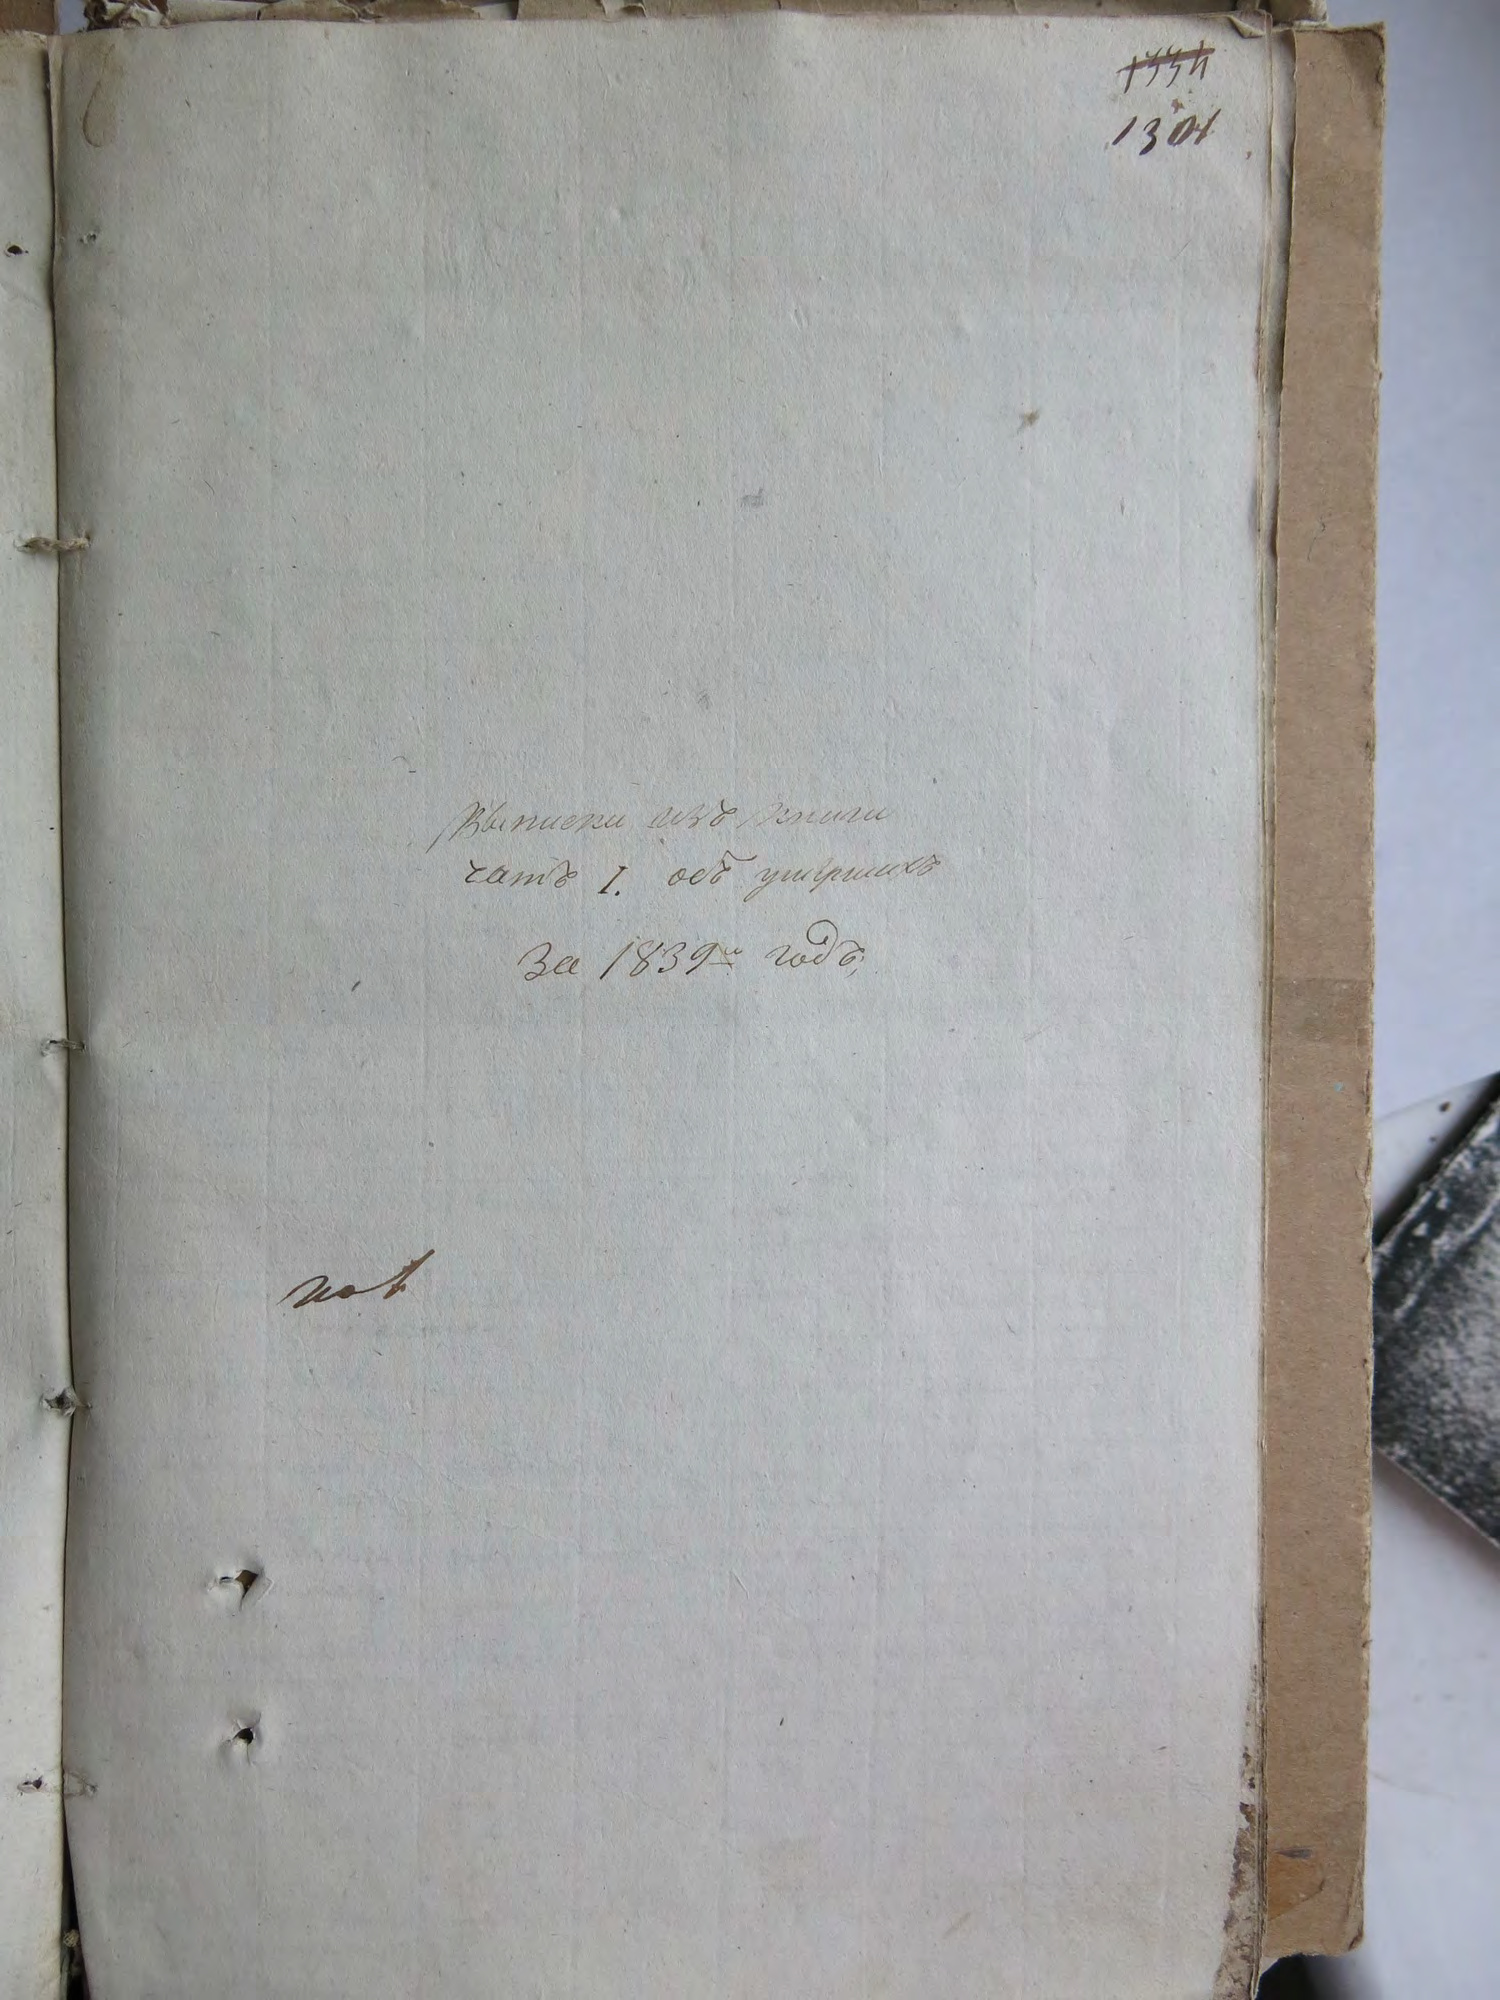 1334
1304
Выписки изъ книги
часть I. объ умершихъ
за 1839й годъ,